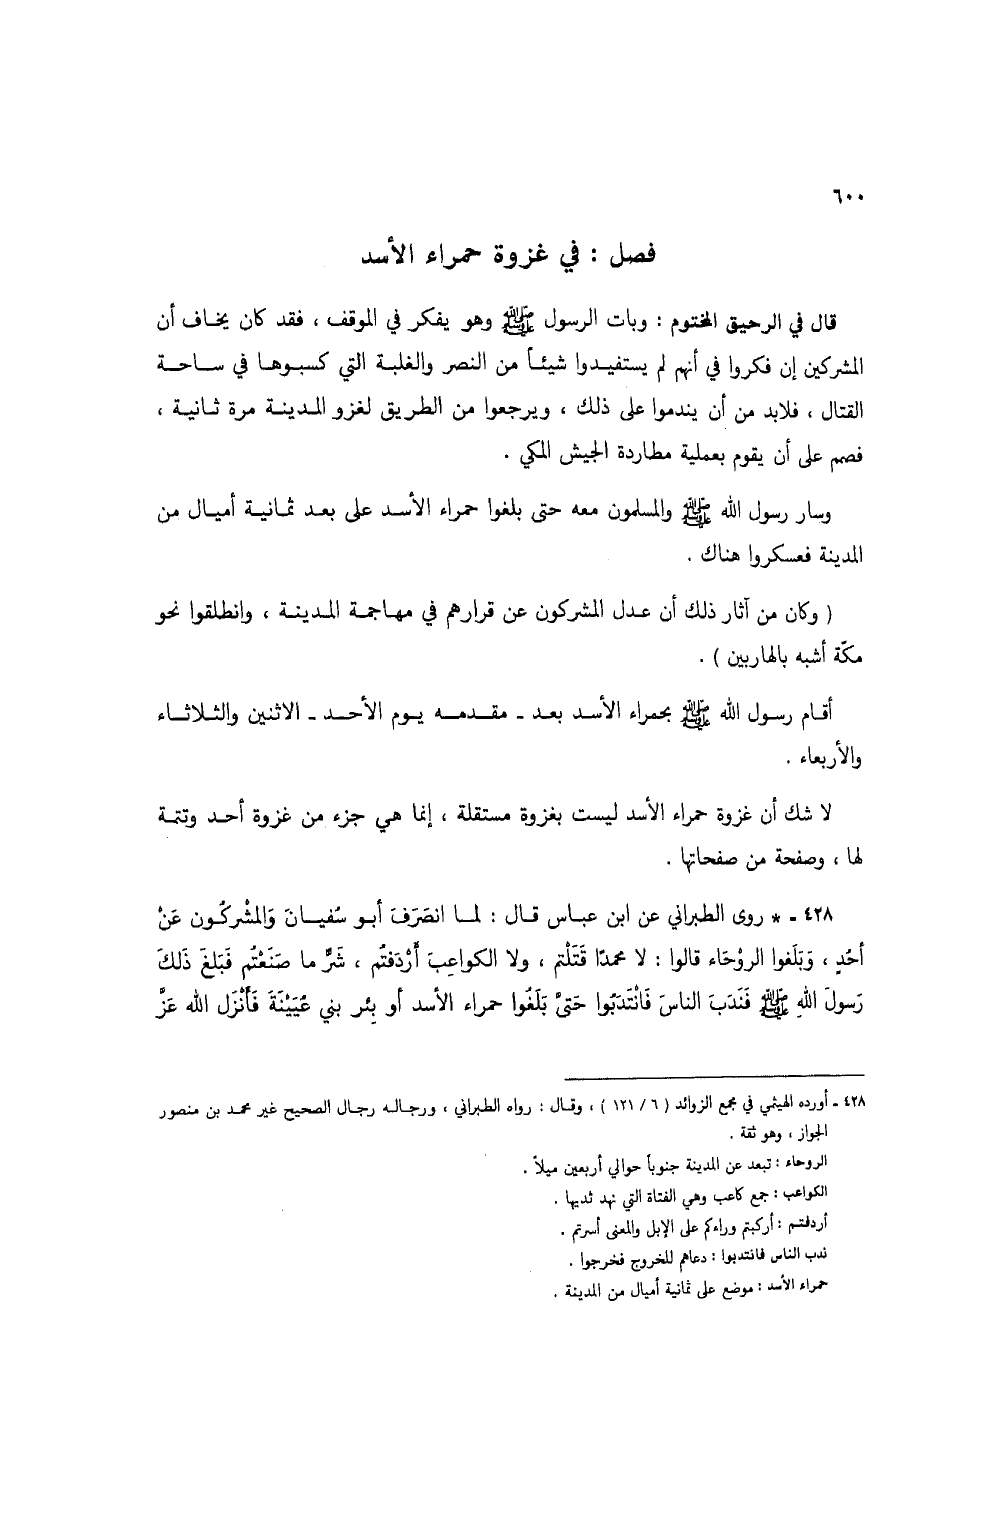 ٦٠٠
فصل : في غزوة حمراء الأسد
قال في الرحيق المختوم : وبات الرسول ﷺ وهو يفكر في الموقف ، فقد كان يخاف أن
المشركين إن فكروا في أنهم لم يستفيدوا شيئاً من النصر والغلبة التي كسبوها في ساحة
القتال ، فلابد من أن يندموا على ذلك ، ويرجعوا من الطريق لغزو المدينة مرة ثانية ،
فصم على أن يقوم بعملية مطاردة الجيش المكي .
وسار رسول الله ﷺ والمسلمون معه حتى بلغوا حمراء الأسد على بعد ثمانية أميال من
المدينة فعسكروا هناك .
( وكان من آثار ذلك أن عدل المشركون عن قرارهم في مهاجمة المدينة ، وانطلقوا نحو
مكّة أشبه بالهاربين ) .
أقام رسول الله ﷺ بحمراء الأسد بعد - مقدمه يوم الأحد - الاثنين والثلاثاء
والأربعاء .
لا شك أن غزوة حمراء الأسد ليست بغزوة مستقلة ، إنما هي جزء من غزوة أحد وتتمة
لها ، وصفحة من صفحاتها .
٤٢٨ - * روى الطبراني عن ابن عباس قال : لما انصَرَفَ أبو سُفيانَ وَالمشْركُون عَنْ
أحُدٍ ، وَبَلَغوا الروْحَاء قالوا : لا محمدًا قَتَلْتم ، ولا الكواعِبَ أَرْدَفتُم ، شَرٌّ ما صَنَعْتُم فَبَلغَ ذَلكَ
رَسولَ اللهِ ﷺ فَنَدَبَ الناسَ فَانْتَدَبُوا حَتىَّ بَلَغُوا حمراء الأسد أو بِئر بني عُيَيْنَةَ فَأنْزَل الله عَزَّ
٤٢٨ - أورده الهيثمي في مجمع الزوائد ( ٦ / ١٢١ ) ، وقال : رواه الطبراني ، ورجاله رجال الصحيح غير محمد بن منصور
الجواز ، وهو ثقة .
الروحاء : تبعد عن المدينة جنوباً حوالي أربعين ميلاً .
الكواعب : جمع كاعب وهي الفتاة التي نهد ثديها .
أردفتم : أركبتم وراءكم على الإبل والمعنى أسرتم .
ندب الناس فانتدبوا : دعاهم للخروج فخرجوا .
حمراء الأسد : موضع على ثمانية أميال من المدينة .